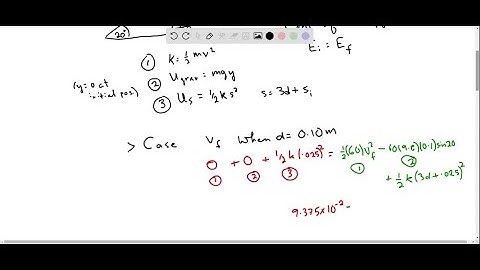 20°
Ei = Ef
① K = ½mv²
(y=0 at initial pos)
② Ugrav = mgy
③ Us = ½ks² s = 3d + si
> Case Vf when d = 0.10m
0 + 0 + ½k(.025)² = ½(60)Vf² - 60(9.8)(0.1)sin20
① ② ③ ① ②
+ ½k(3d+.025)²
9.375x10⁻² -